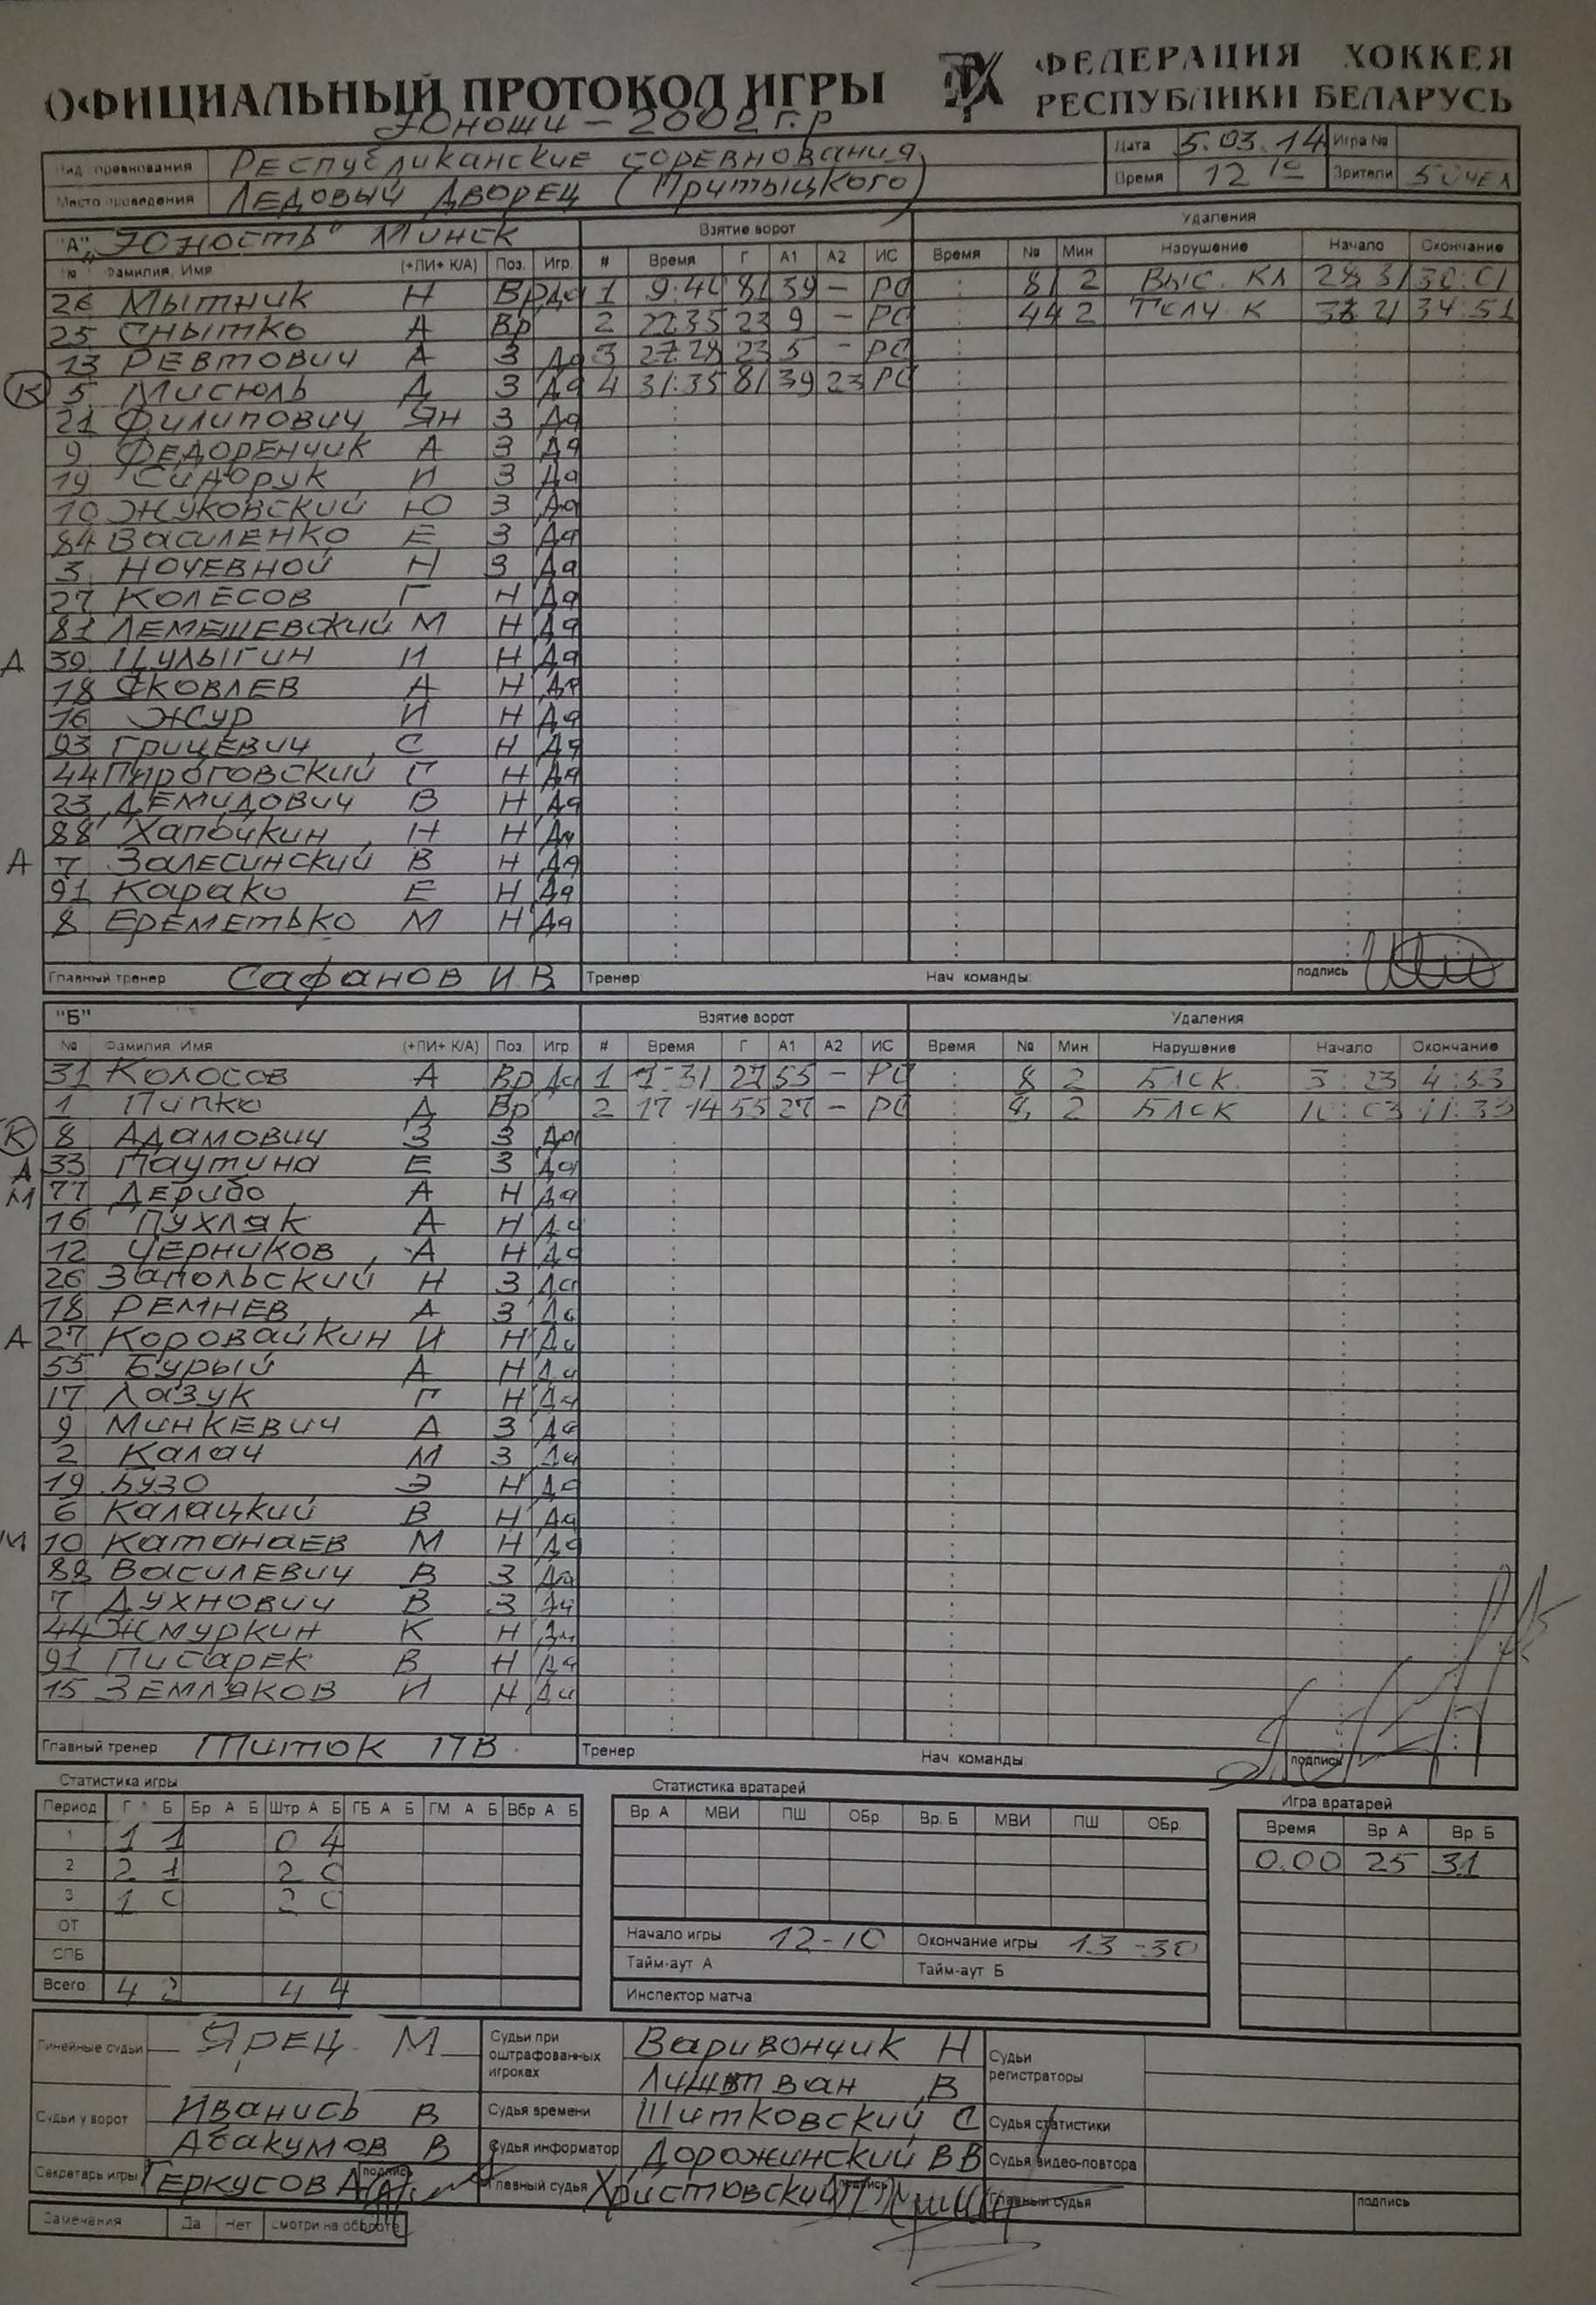 ОФИЦИАЛЬНЫЙ ПРОТОКОЛ ИГРЫ
ФЕДЕРАЦИЯ ХОККЕЯ
РЕСПУБЛИКИ БЕЛАРУСЬ
Юноши - 2002 г.р
Вид соревнования Республиканские соревнования Дата 5.03.14 Игра №
Место проведения Ледовый Дворец (Притыцкого) Время 12 10 Зрители 50 чел
"А" "Юность" Минск Взятие ворот Удаления
№ Фамилия, Имя (+ПИ+ К/А) Поз. Игр. # Время Г А1 А2 ИС Время № Мин Нарушение Начало Окончание
Мытник Н Вр Да 1 81 39 - 81 2 Выс. Кл
25 Снытко А Вр 2 22 35 23 9 - 44 2 34:51
13 Ревтович А З Да 3 23 5 -
К 5 Мисюль Д З Да 4 31:35 81 39 23
21 Филипович Ян З Да
9 Федоренчик А З Да
19 Сидорук И З Да
10 Жуковский Ю З Да
84 Василенко Е З Да
3 Ночевной Н З Да
27 Колесов Г Н Да
81 Лемешевский М Н Да
А 39 Цулыгин И Н Да
18 Яковлев А Н Да
16 Жур И Н Да
93 Грицевич С Н Да
44 Пироговский Г Н Да
23 Демидович В Н Да
88 Хапочкин Н Н Да
А 7 Залесинский В Н Да
91 Карако Е Н Да
8 Ереметько М Н Да
Главный тренер Сафанов И.В. Тренер Нач. команды: подпись
"Б" Взятие ворот Удаления
№ Фамилия Имя (+ПИ+ К/А) Поз. Игр # Время Г А1 А2 ИС Время № Мин Нарушение Начало Окончание
31 Колосов А Вр Да 1 27 55 - 8 2 Блок.
1 Пипко Д Вр 2 17 14 55 27 - 2 Блок
К 8 Адамович З З Да
А 33 Паутина Е З Да
М 77 Дерибо А Н Да
16 Пухляк А Н Да
12 Черников А Н Да
26 Запольский Н З Да
18 Ремнев А З Да
А 27 Коровайкин И Н Да
55 Бурый А Н Да
17 Лазук Г Н Да
9 Минкевич А З Да
2 Калач М З Да
19 Бузо Э Н Да
6 Калацкий В Н Да
М 10 Катанаев М Н Да
88 Василевич В З Да
7 Духнович В З Да
44 Жмуркин К Н Да
91 Писарек В Н Да
15 Земляков И Н Да
Главный тренер Титок ПВ. Тренер Нач. команды: подпись
Статистика игры Статистика вратарей Игра вратарей
Период Г А Б Бр А Б Штр А Б ГБ А Б ГМ А Б Вбр А Б Вр. А МВИ ПШ ОБр Вр. Б МВИ ПШ ОБр. Время Вр А Вр. Б
1 1 1 0 4
2 2 1 2 0 0.00 25 31
3 1 0 2 0
ОТ Начало игры 12-10 Окончание игры 13-30
СПБ Тайм-аут А Тайм-аут Б
Всего 4 2 4 4 Инспектор матча
Линейные судьи Ярец М Судьи при оштрафованных игроках Варивончик Н Судьи регистраторы
В
Судьи у ворот Иванись В Судья времени Шитковский С Судья статистики
Абакумов В Судья информатор Дорожинский ВВ Судья видео-повтора
Секретарь игры Геркусов А подпись Главный судья Христовский подпись Главный судья подпись
Замечания Да Нет смотри на обороте